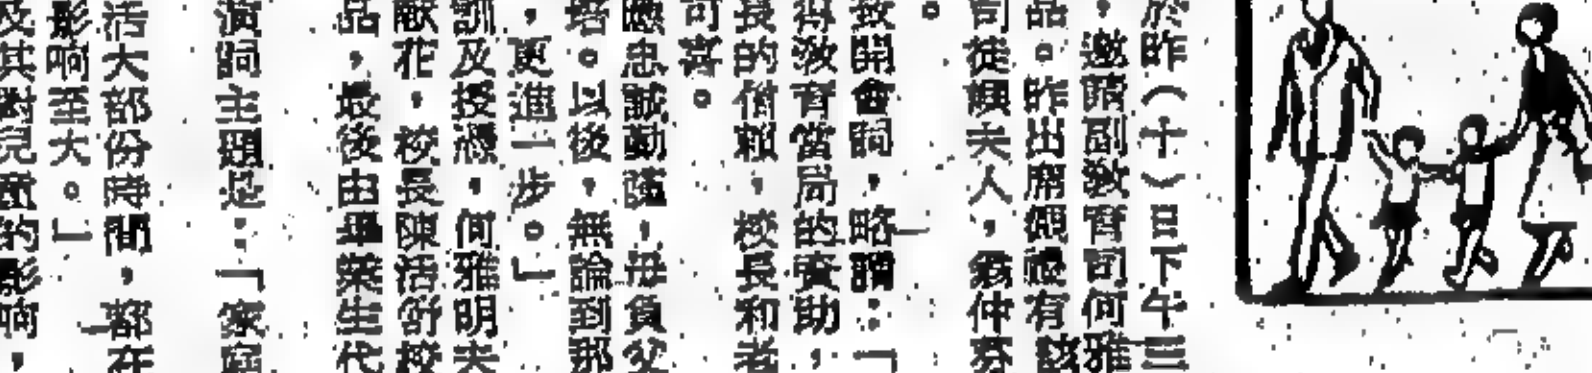 於昨（十）日下午三
，邀請副教育司何雅
品。昨出席典禮有該
司徒輝夫人，
致開會詞，略謂：「
得教育當局的資助，
長的信賴，校長和老
可喜。
應忠誠勤謹，毋負父
培。以後，無論到那
，更進一步。」
訓及授憑，何雅明夫
獻花，校長陳活舒校
品，最後由畢業生代
演詞主題是：「家庭
活大部份時間，都在
影响至大。」
及其對兒童的影响，